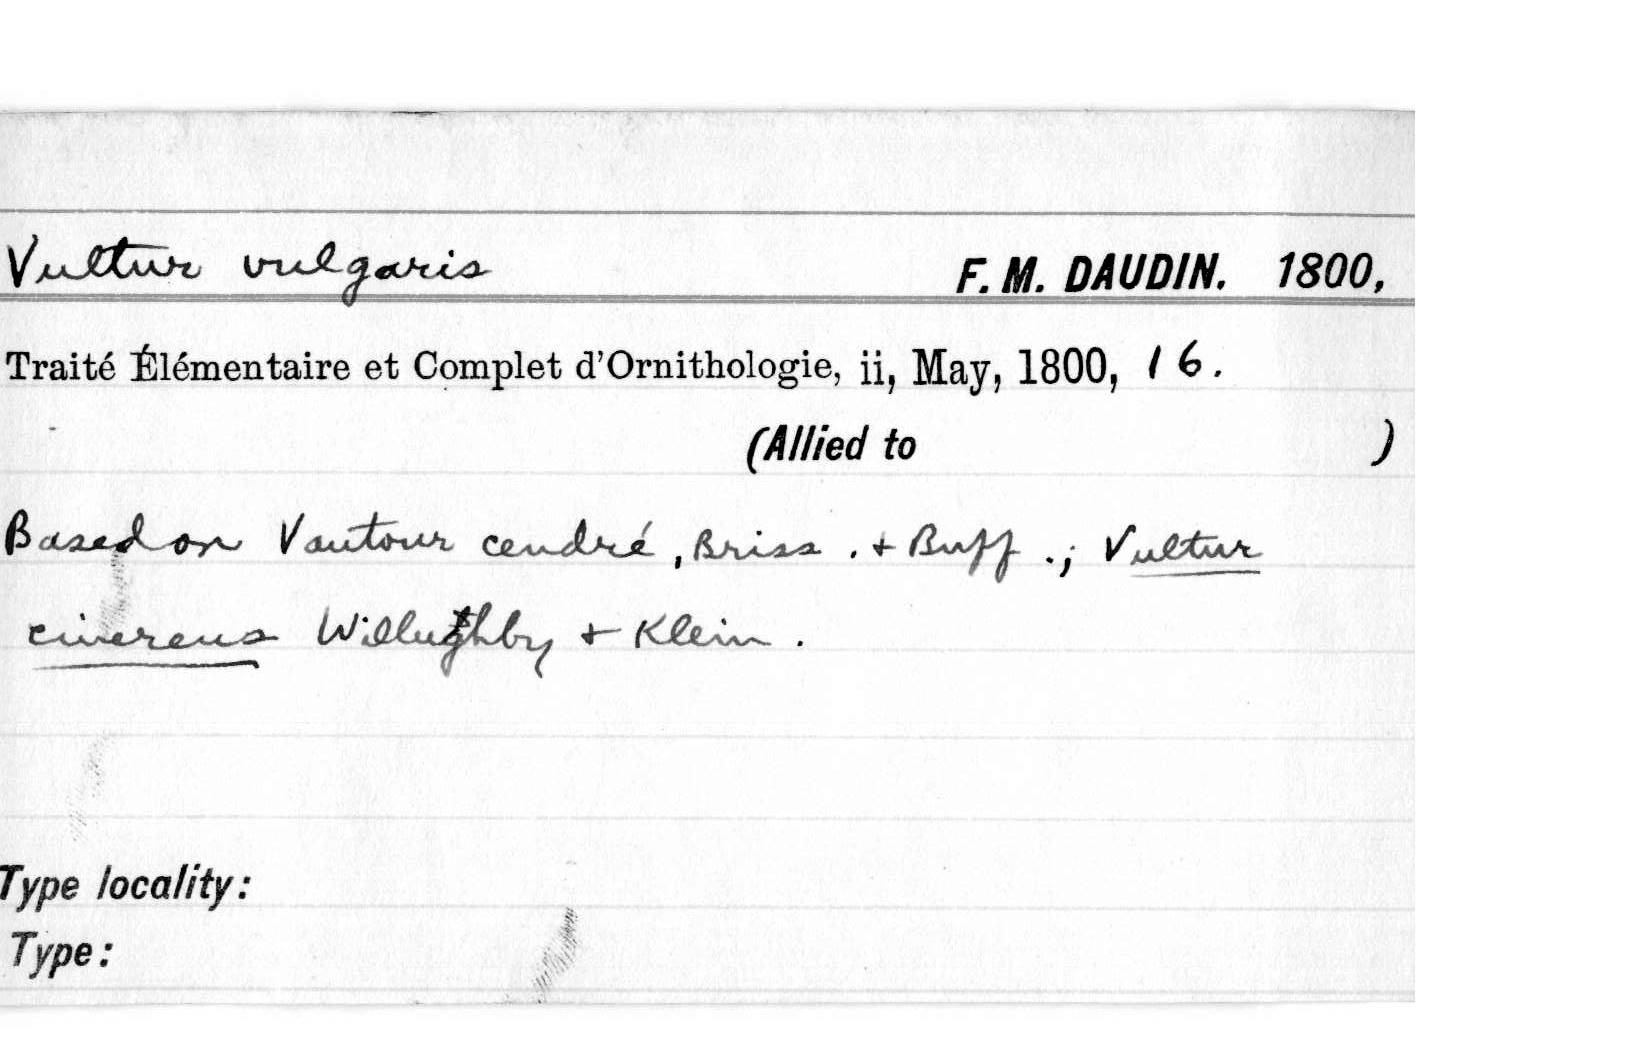 Vultur vulgaris F. M. DAUDIN. 1800,
Traité Élémentaire et Complet d'Ornithologie, ii, May, 1800, 16.
(Allied to )
Based on Vautour cendré, Briss. + Buff.; Vultur
cinereus Willughby + Klein.
Type locality:
Type: